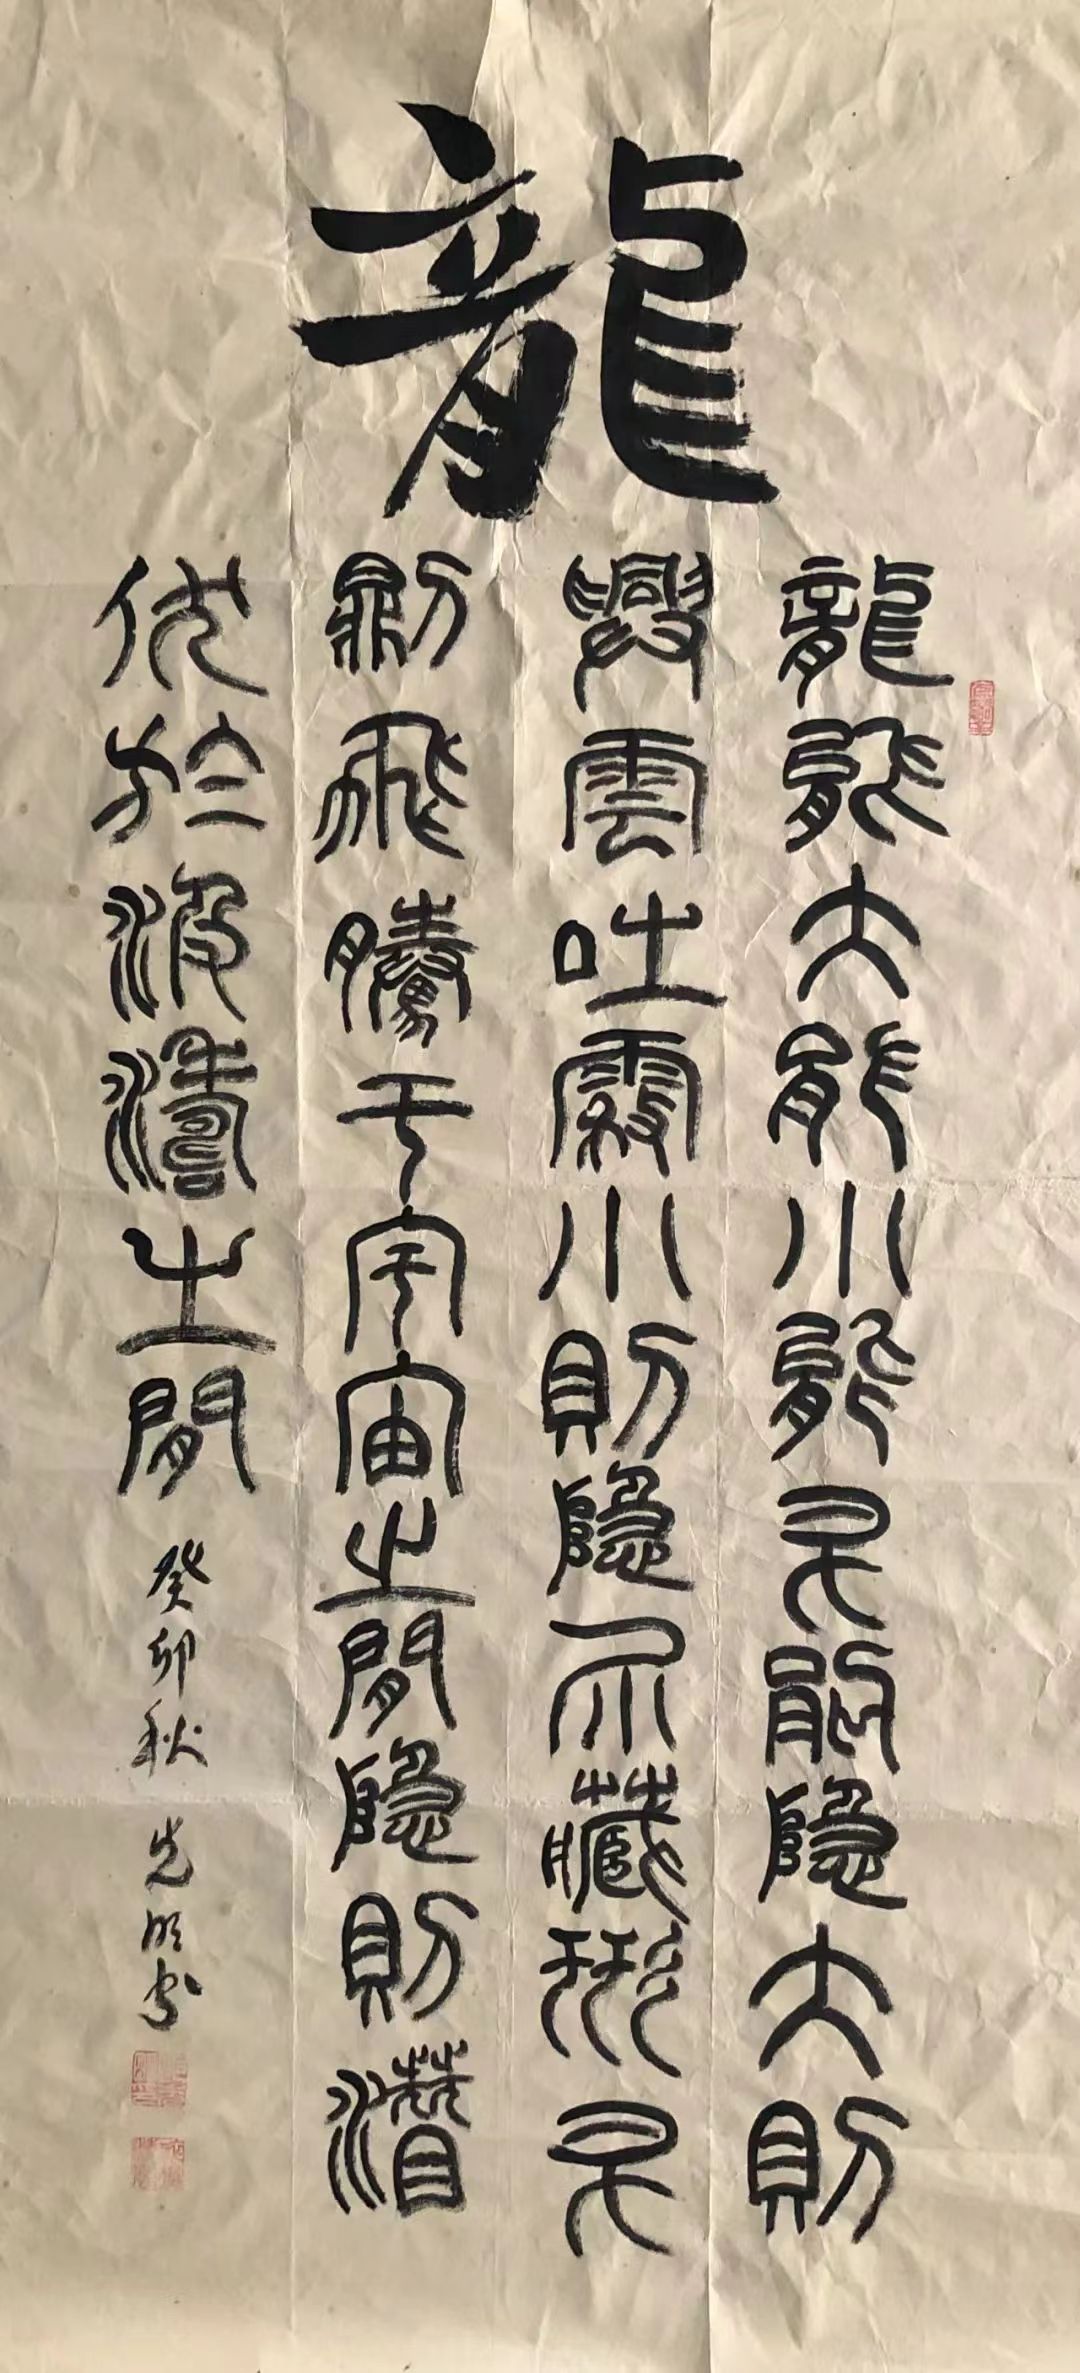 龍
龍能大能小能升能隱大則
興雲吐霧小則隱介藏形升
則飛騰于宇宙之間隱則潛
伏於波濤之間
癸卯秋 先明书